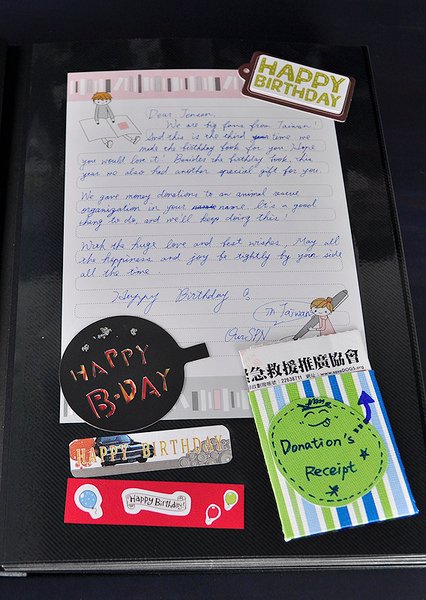 HAPPY
BIRTHDAY
Dear Jensen,
We are big fans from Taiwan!
And this is the third time we
made the birthday book for you. Hope
you would love it! Besides the birthday book, this
year we also had another special gift for you.
We gave money donations to an animal rescue
organization in your name. It's a good
thing to do, and we'll keep doing this!
With the huge love and best wishes, May all
the happiness and joy be tightly by your side
all the time
Happy Birthday
Taiwan
OurSPN
HAPPY
B-DAY
急救援推廣協會
22838711
HAPPY BIRTHDAY
Happy Birthday!
Donation's
Receipt